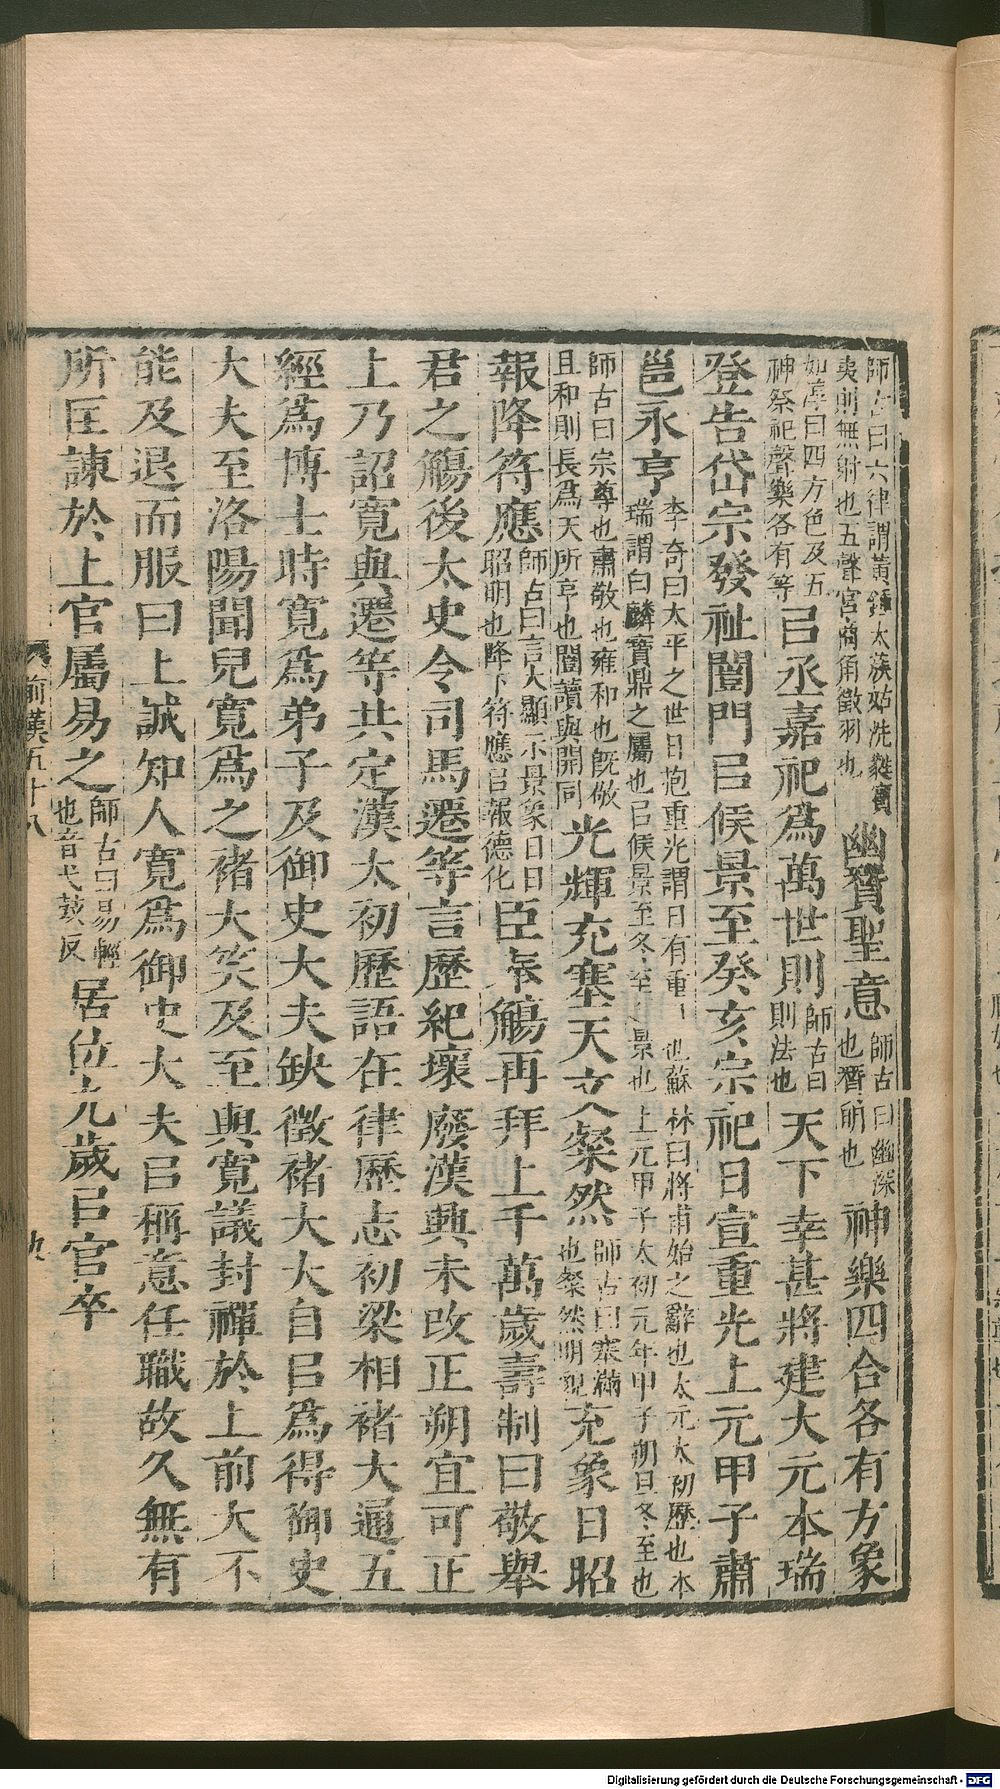 師古曰六律謂黃鍾太蔟姑洗蕤賓
夷則無射也五聲宮商角徵羽也
幽贊聖意
師古曰幽深
也贊明也
神樂四合各有方象
如淳曰四方色及五
神祭祀聲樂各有等
㠯丞嘉祀爲萬世則
師古曰
則法也
天下幸甚將建大元本瑞
登告岱宗發祉闓門㠯候景至癸亥宗祀日宣重光上元甲子肅
邕永亨
李奇曰太平之世日抱重光謂日有重也蘇林曰將甫始之辭也太元太初歷也本
瑞謂白麟寶鼎之屬也㠯候景至冬至景也上元甲子太初元年甲子朔旦冬至也
師古曰宗尊也肅敬也雍和也旣敬
且和則長爲天所亨也闓讀與開同
光輝充塞天文粲然
師古曰塞滿
也粲然明貌
充象日昭
報降符應
師古曰言天顯示景象日日
昭明也降下符應㠯報德化
臣奉觴再拜上千萬歲壽制曰敬舉
君之觴後太史令司馬遷等言歷紀壞廢漢興未改正朔宜可正
上乃詔寬與遷等共定漢太初歷語在律歷志初梁相褚大通五
經爲博士時寬爲弟子及御史大夫缺徵褚大大自㠯爲得御史
大夫至洛陽聞兒寬爲之褚大笑及至與寬議封禪於上前大不
能及退而服曰上誠知人寬爲御史大夫㠯稱意任職故久無有
所匡諫於上官屬易之
師古曰易輕
也音弋豉反
居位九歲㠯官卒
前漢五十八
九
Digitalisierung gefördert durch die Deutsche Forschungsgemeinschaft - DFG